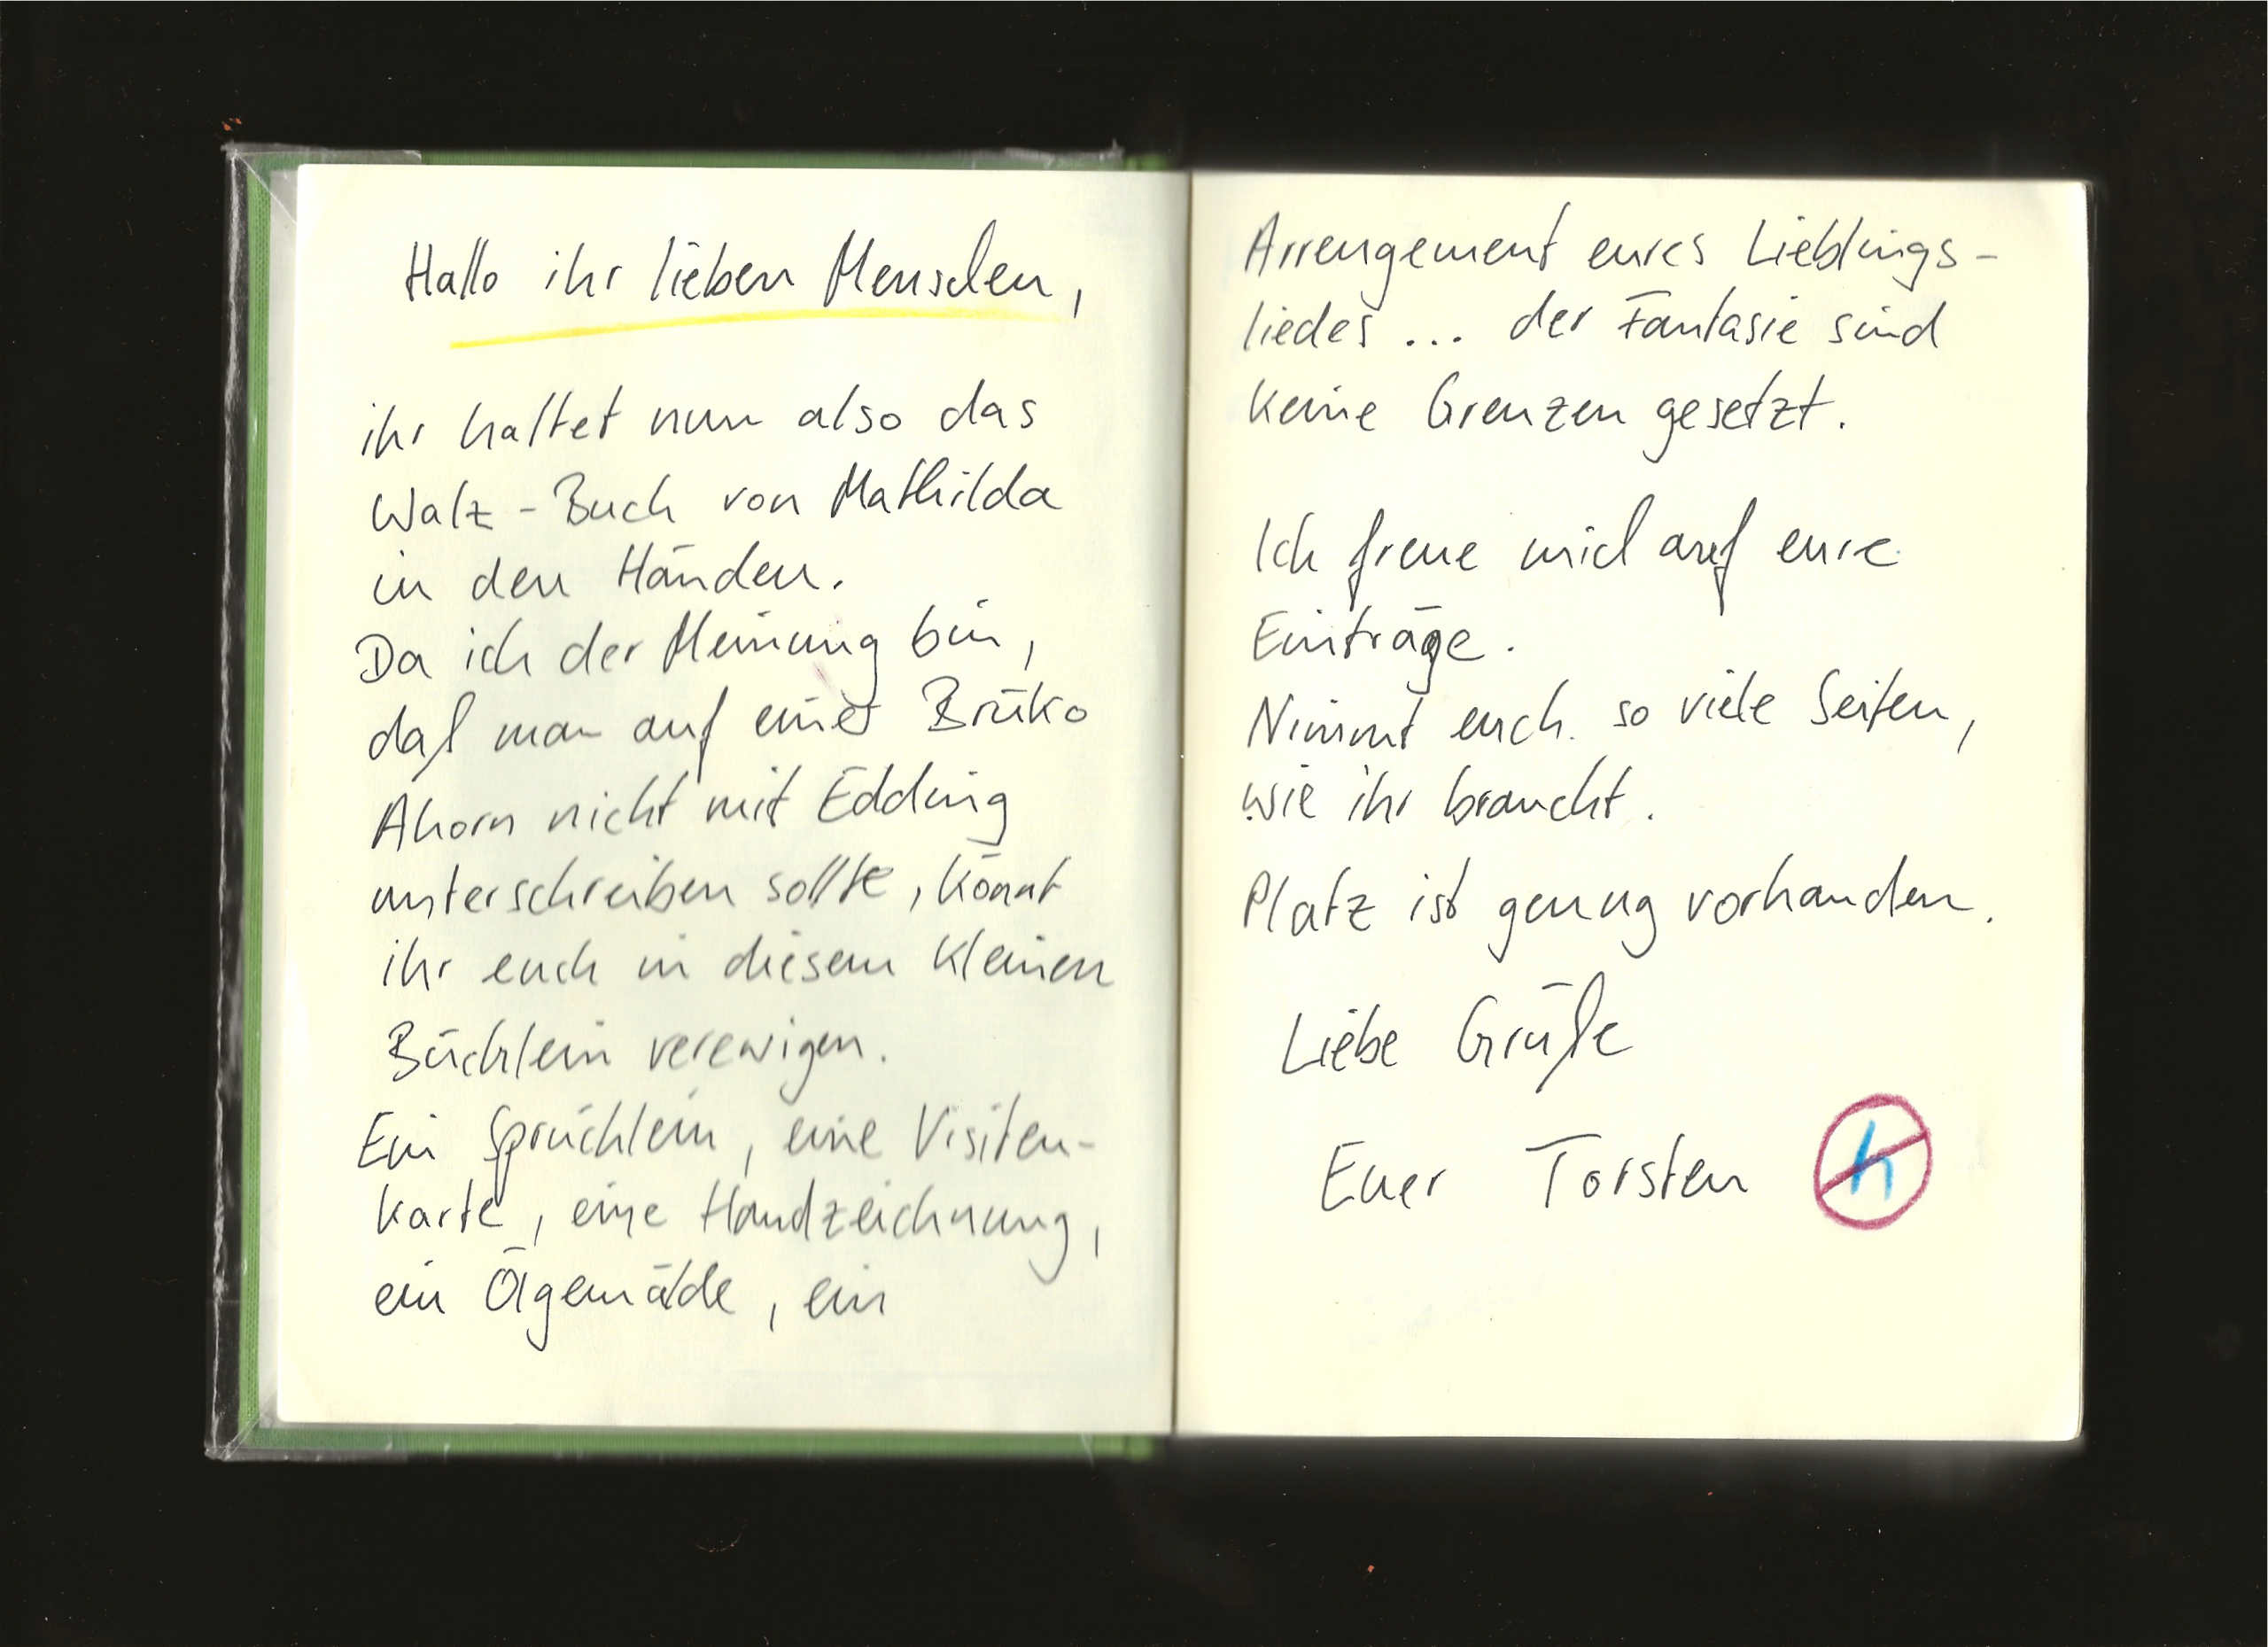 Hallo ihr lieben Menschen,
ihr haltet nun also das
Walz-Buch von Mathilda
in den Händen.
Da ich der Meinung bin,
daß man auf einer Brüko
Ahorn nicht mit Edding
unterschreiben sollte, könnt
ihr euch in diesem kleinen
Büchlein verewigen.
Ein Sprüchlein, eine Visiten-
karte, eine Handzeichnung,
ein Ölgemälde, ein
Arrengement eures Lieblings-
liedes ... der Fantasie sind
keine Grenzen gesetzt.
Ich freue mich auf eure
Einträge.
Nimmt euch so viele Seiten,
wie ihr braucht.
Platz ist genug vorhanden.
Liebe Grüße
Euer Torsten h